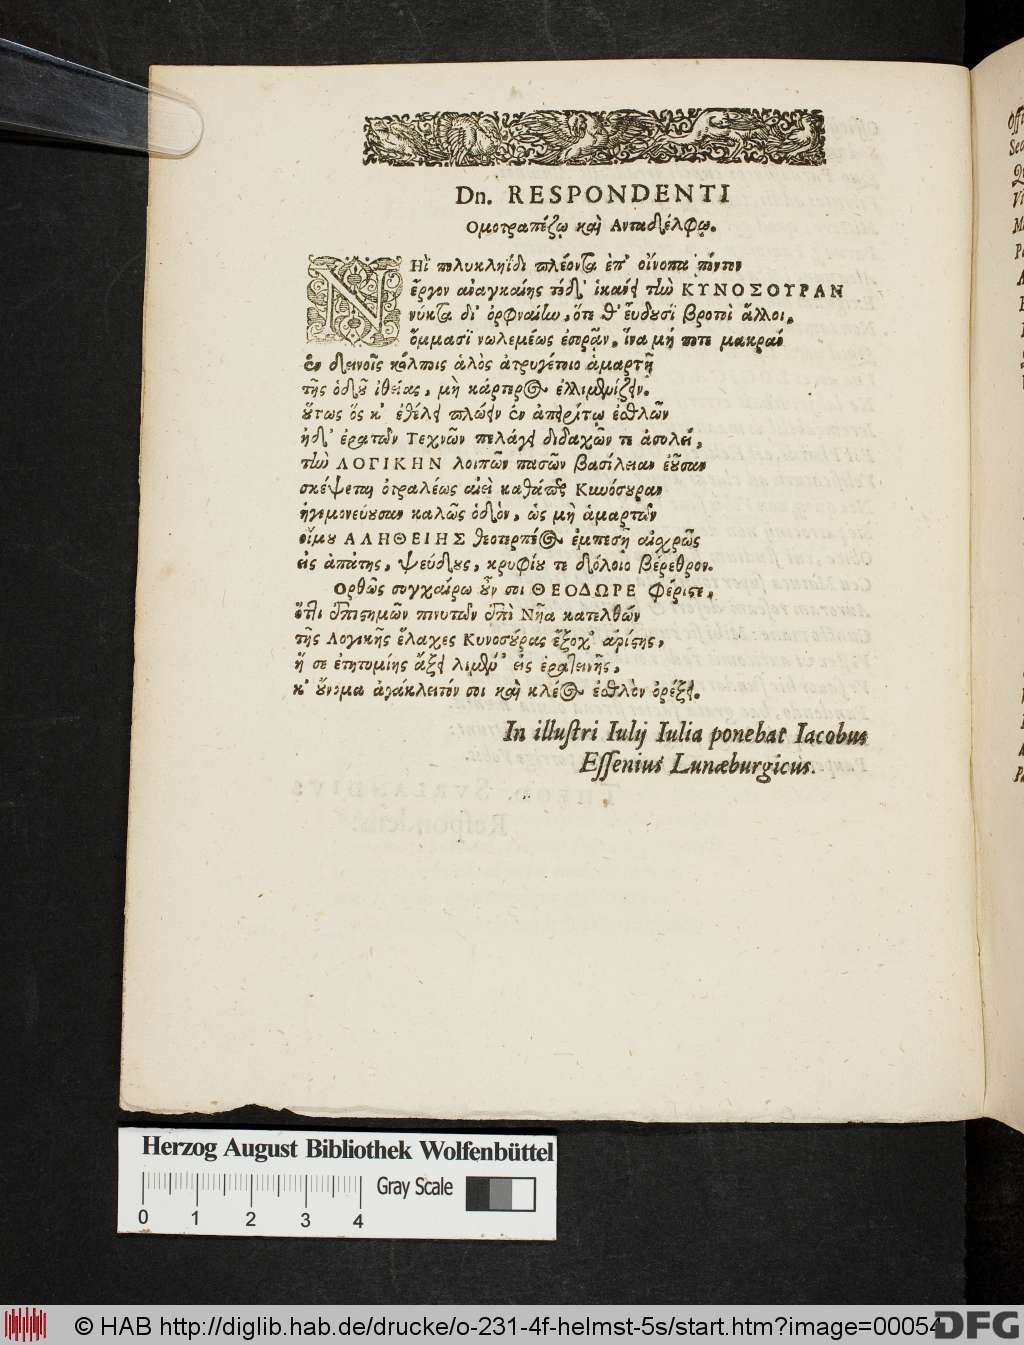 Dn. RESPONDENTI
Ομοτραπέζῳ καὶ Ανταδέλφῳ.
ΝΗῒ πολυκληΐδι πλέοντα ἐπ' οἴνοπα πόντον
ἔργον ἀναγκαίης τόδ' ἱκάνει τὴν ΚΥΝΟΣΟΥΡΑΝ
νύκτα δι' ὀρφναίην, ὅτε θ' εὕδουσϊ βροτοὶ ἄλλοι,
ὄμμασϊ νωλεμέως ἐσορᾷν, ἵνα μή ποτε μακρὰν
ἐν δεινοῖς κόλποις ἁλὸς ἀτρυγέτοιο ἁμαρτῇ
τῆς ὁδοῦ ἰθείας, μὴ κάρτερος ἐλλιμενίζειν.
οὕτως ὅς κ' ἐθέλει πλώειν ἐν ἀπείρίτῳ ἐσθλῶν
ἠδ' ἐρατῶν Τεχνῶν πελάγει διδαχῶν τε ἀσυλεί,
τὴν ΛΟΓΙΚΗΝ λοιπῶν πασῶν βασίλειαν ἐοῦσαν
σκέψεται ὀτραλέως αἰεὶ καθάπερ Κυνόσουραν
ἡγεμονεύουσαν καλῶς ὁδὸν, ὡς μὴ ἁμαρτὼν
οἴμου ΑΛΗΘΕΙΗΣ θεοτερπέος ἐμπεσῇ αἰσχρῶς
εἰς ἀπάτης, ψεύδους, κρυφίου τε δόλοιο βέρεθρον.
Ορθῶς συγχαίρω οὖν σοι ΘΕΟΔΩΡΕ φέριστε,
ὅττι ἐπιστημῶν πινυτῶν ἐπὶ Νῆα κατελθών
τῆς Λογικῆς ἔλαχες Κυνοσούρας ἔξοχ' ἀρίστης,
ἥ σε ἐτητυμίης ἄξει λιμέν' εἰς ἐρατεινῆς,
κ' οὔνομα ἀγάκλειτόν σοι καὶ κλέος ἐσθλὸν ὀρέξει.
In illustri Iulij Iulia ponebat Iacobus
Essenius Lunæburgicus.
Herzog August Bibliothek Wolfenbüttel
Gray Scale
0 1 2 3 4
© HAB http://diglib.hab.de/drucke/o-231-4f-helmst-5s/start.htm?image=00054
DFG